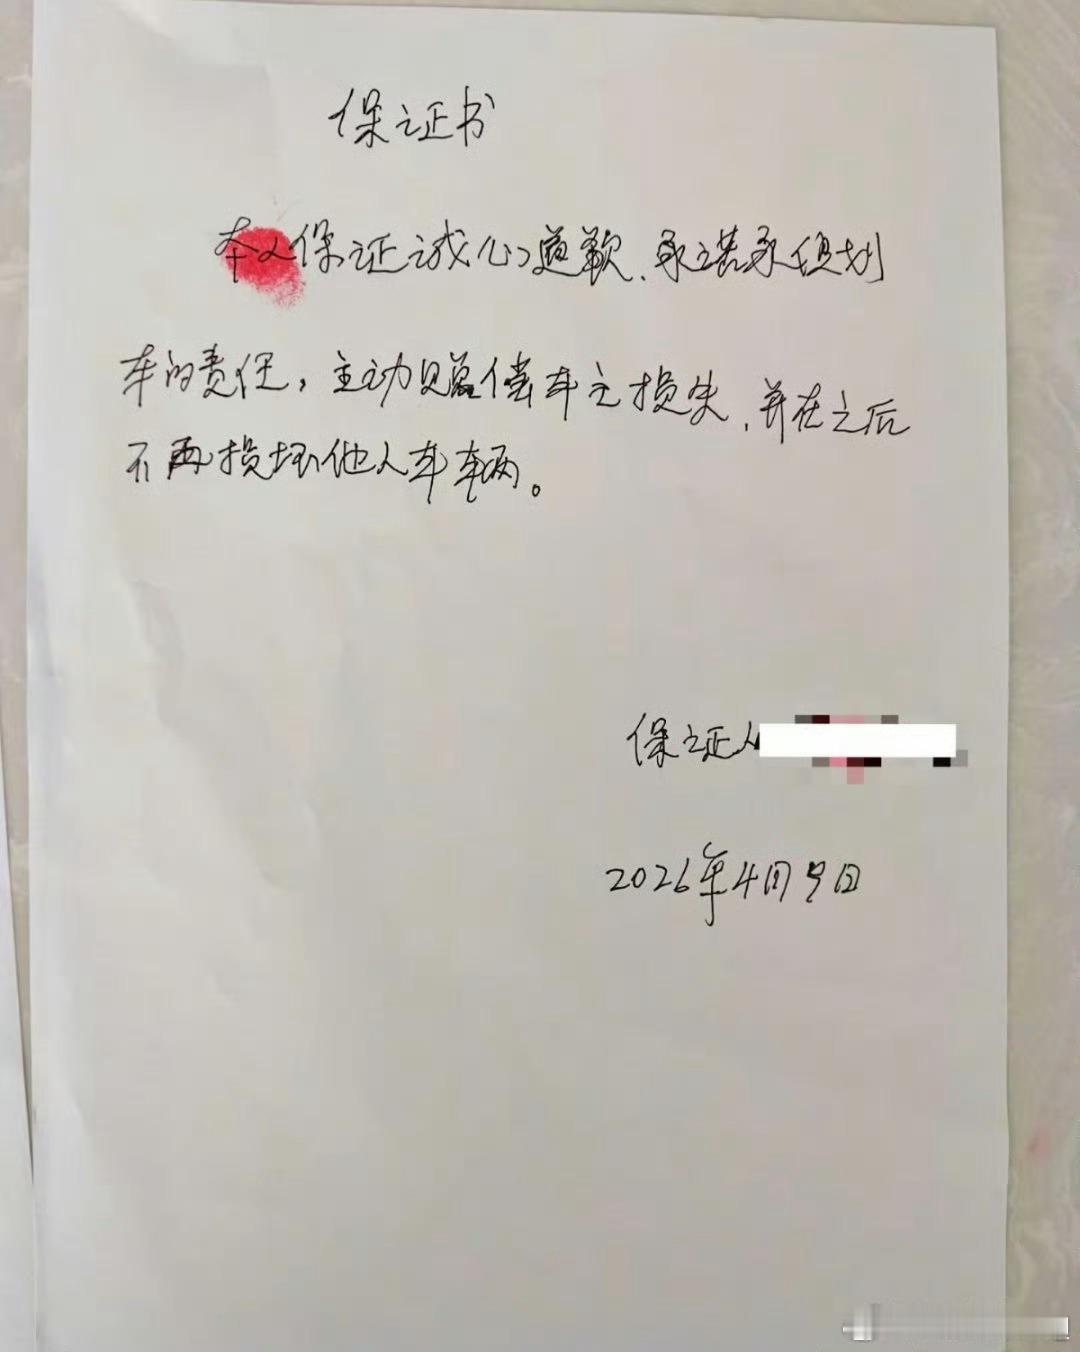 保证书
本人保证诚心道歉、承诺承担划
车的责任，主动赔偿车主损失、并在之后
不再损坏他人车车辆。
保证人
2026年4月9日